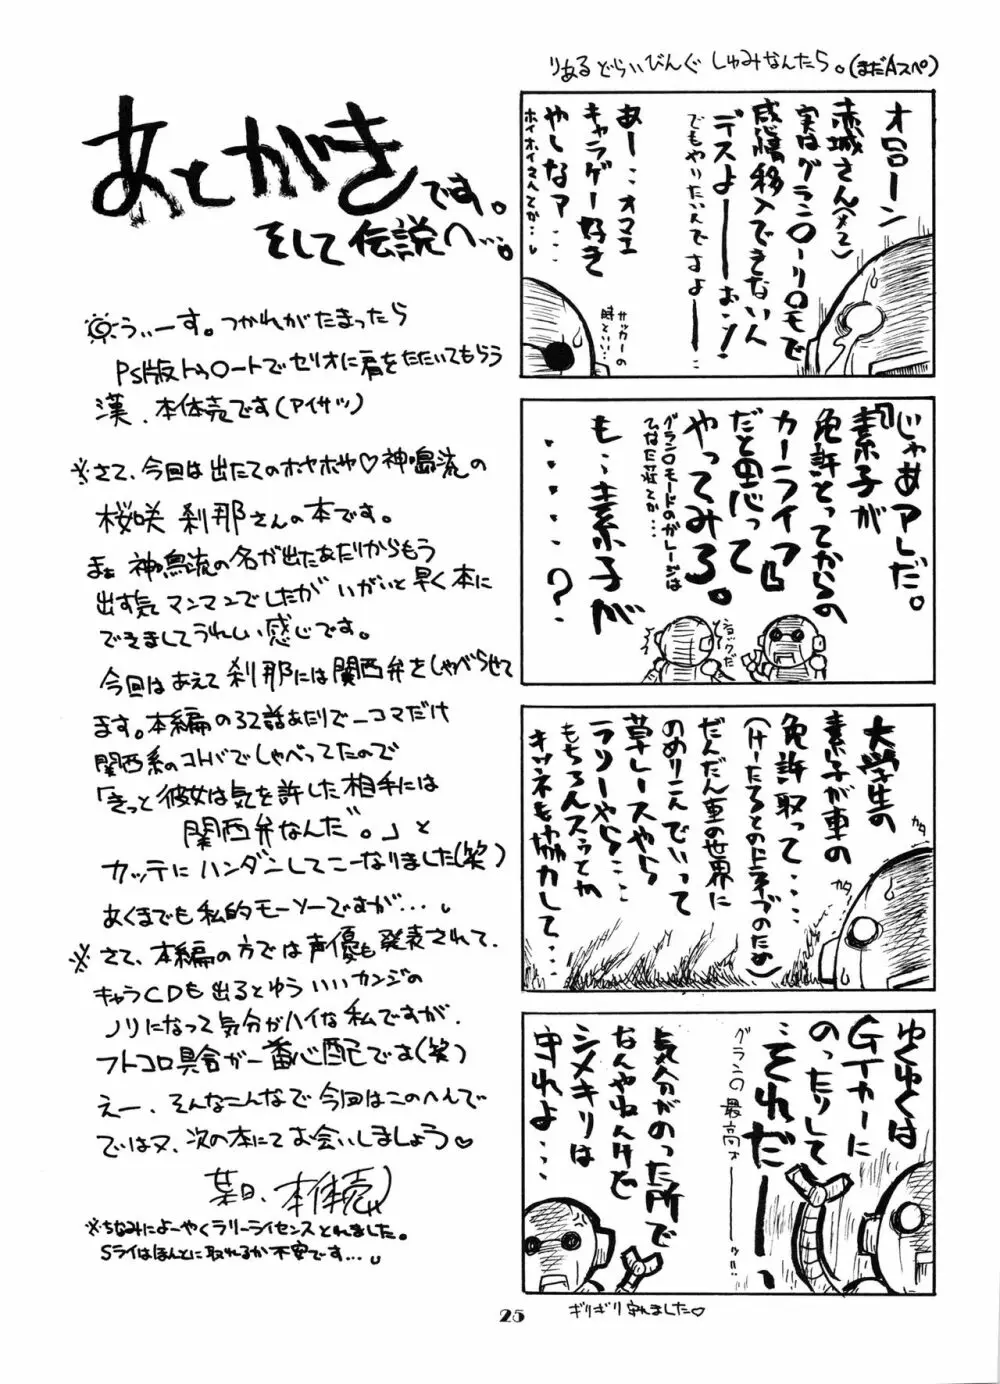 あとがきです。
そして伝説へ…。
うぃーす。つかれがたまったら
PS版トゥ○ートでセリオに肩をたたいてもらう
漢、本体売です(アイサツ)
※さて、今回は出たてのホヤホヤ♡神鳴流の
桜咲 刹那さんの本です。
まぁ神鳴流の名が出たあたりからもう
出す気マンマンでしたがいがいと早く本に
できましてうれしい感じです。
今回はあえて刹那には関西弁をしゃべらせて
ます。本編の32話あたりで一コマだけ
関西系のコトバでしゃべってたので
「きっと彼女は気を許した相手には
関西弁なんだ。」と
カッテにハンダンしてこーなりました(笑)
あくまでも私的モーソーですが…。
※さて、本編の方では声優も発表されて、
キャラCDも出るとゆういいカンジの
ノリになって気分がハイな私ですが、
フトコロ具合が一番心配です(笑)
えー、そんなこんなで今回はこのへんで
ではヌ、次の本にてお会いしましょう♡
某日、本体売
※ちなみによーやくラリーライセンスとれました。
Sライはほんとに取れるか不安です…。
りあるどらいびんぐ しゅみなんたら。(まだAスペ)
オローン
赤城さん(メ2)
実はグラン○ーリ○モで
感情移入できないん
デスよーーーぉぉ!
でもやりたいんですよーー…
あー…オマエ
キャラゲー好き
やしなァ…
ホイホイさんてか…
サッカーの
時といい…
『じゃあアレだ。
素子が
免許とってからの
カーライフ』
だと思って
やってみろ。
グラン○モードのガレージは
ひなた荘とか…
も…素子が
……?
ショックだ
大学生の
素子が車の
免許取って…
(けーたろとのドライブのため)
だんだん車の世界に
のめりこんでいって
草レースやら
ラリーやら…
もちろんスゥとか
キツネも協力して…
カタ
カタ
ゆくゆくは
GTカーに
のったりして
…それだーーっ
グラン○最高ォーーッ!!
気分がのった所で
なんやねんけど
シメキリは
守れよ…
ギリギリ守れました♡
25